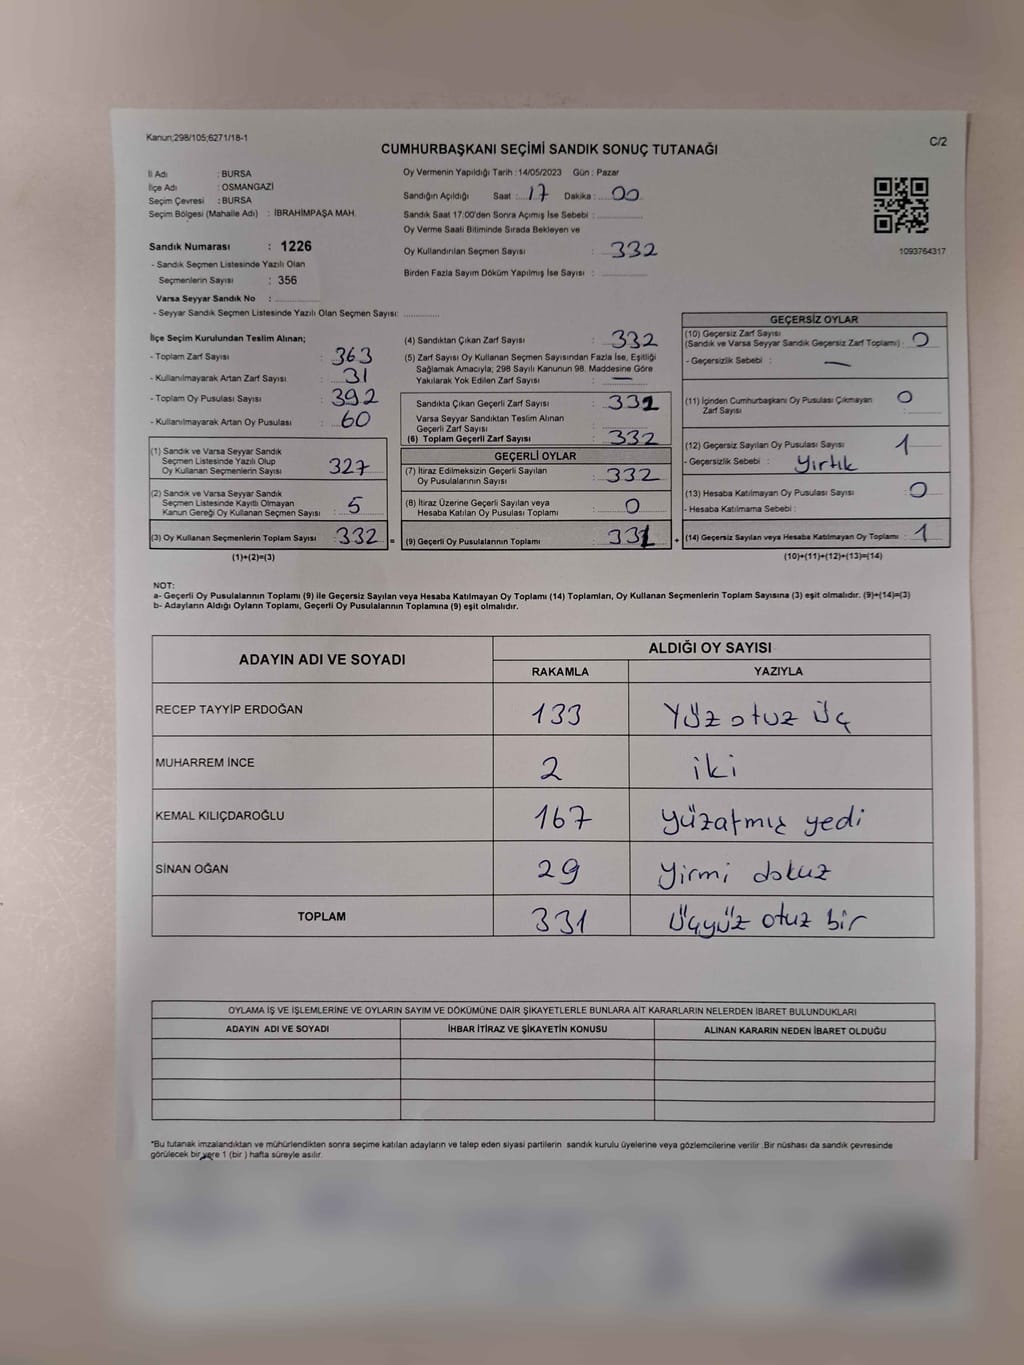 Kanun;298/105;6271/18-1
C/2
CUMHURBAŞKANI SEÇİMİ SANDIK SONUÇ TUTANAĞI
İl Adı : BURSA
İlçe Adı : OSMANGAZİ
Seçim Çevresi : BURSA
Seçim Bölgesi (Mahalle Adı) : İBRAHİMPAŞA MAH.
Sandık Numarası : 1226
- Sandık Seçmen Listesinde Yazılı Olan
Seçmenlerin Sayısı : 356
Varsa Seyyar Sandık No :
- Seyyar Sandık Seçmen Listesinde Yazılı Olan Seçmen Sayısı:
Oy Vermenin Yapıldığı Tarih : 14/05/2023 Gün : Pazar
Sandığın Açıldığı Saat : 17 Dakika : 00
Sandık Saat 17:00'den Sonra Açımış İse Sebebi :
Oy Verme Saati Bitiminde Sırada Bekleyen ve
Oy Kullandırılan Seçmen Sayısı : 332
Birden Fazla Sayım Döküm Yapılmış İse Sayısı :
1093764317
İlçe Seçim Kurulundan Teslim Alınan;
- Toplam Zarf Sayısı : 363
- Kullanılmayarak Artan Zarf Sayısı : 31
- Toplam Oy Pusulası Sayısı : 392
- Kullanılmayarak Artan Oy Pusulası : 60
(1) Sandık ve Varsa Seyyar Sandık
Seçmen Listesinde Yazılı Olup
Oy Kullanan Seçmenlerin Sayısı : 327
(2) Sandık ve Varsa Seyyar Sandık
Seçmen Listesinde Kayıtlı Olmayan
Kanun Gereği Oy Kullanan Seçmen Sayısı : 5
(3) Oy Kullanan Seçmenlerin Toplam Sayısı : 332 =
(1)+(2)=(3)
(4) Sandıktan Çıkan Zarf Sayısı : 332
(5) Zarf Sayısı Oy Kullanan Seçmen Sayısından Fazla İse, Eşitliği
Sağlamak Amacıyla; 298 Sayılı Kanunun 98. Maddesine Göre
Yakılarak Yok Edilen Zarf Sayısı : —
Sandıkta Çıkan Geçerli Zarf Sayısı :
Varsa Seyyar Sandıktan Teslim Alınan
Geçerli Zarf Sayısı :
(6) Toplam Geçerli Zarf Sayısı : 332
GEÇERLİ OYLAR
(7) İtiraz Edilmeksizin Geçerli Sayılan
Oy Pusulalarının Sayısı : 332
(8) İtiraz Üzerine Geçerli Sayılan veya
Hesaba Katılan Oy Pusulası Toplamı : 0
(9) Geçerli Oy Pusulalarının Toplamı : 331 +
GEÇERSİZ OYLAR
(10) Geçersiz Zarf Sayısı
(Sandık ve Varsa Seyyar Sandık Geçersiz Zarf Toplamı) : 0
- Geçersizlik Sebebi : —
(11) İçinden Cumhurbaşkanı Oy Pusulası Çıkmayan
Zarf Sayısı : 0
(12) Geçersiz Sayılan Oy Pusulası Sayısı : 1
- Geçersizlik Sebebi : Yırtık
(13) Hesaba Katılmayan Oy Pusulası Sayısı : 0
- Hesaba Katılmama Sebebi :
(14) Geçersiz Sayılan veya Hesaba Katılmayan Oy Toplamı : 1
(10)+(11)+(12)+(13)=(14)
NOT:
a- Geçerli Oy Pusulalarının Toplamı (9) ile Geçersiz Sayılan veya Hesaba Katılmayan Oy Toplamı (14) Toplamları, Oy Kullanan Seçmenlerin Toplam Sayısına (3) eşit olmalıdır. (9)+(14)=(3)
b- Adayların Aldığı Oyların Toplamı, Geçerli Oy Pusulalarının Toplamına (9) eşit olmalıdır.
ADAYIN ADI VE SOYADI ALDIĞI OY SAYISI
RAKAMLA YAZIYLA
RECEP TAYYİP ERDOĞAN 133 Yüz otuz üç
MUHARREM İNCE 2 iki
KEMAL KILIÇDAROĞLU 167 yüzatmış yedi
SİNAN OĞAN 29 yirmi dokuz
TOPLAM 331 üçyüz otuz bir
OYLAMA İŞ VE İŞLEMLERİNE VE OYLARIN SAYIM VE DÖKÜMÜNE DAİR ŞİKAYETLERLE BUNLARA AİT KARARLARIN NELERDEN İBARET BULUNDUKLARI
ADAYIN ADI VE SOYADI İHBAR İTİRAZ VE ŞİKAYETİN KONUSU ALINAN KARARIN NEDEN İBARET OLDUĞU
*Bu tutanak imzalandıktan ve mühürlendikten sonra seçime katılan adayların ve talep eden siyasi partilerin sandık kurulu üyelerine veya gözlemcilerine verilir .Bir nüshası da sandık çevresinde
görülecek bir yere 1 (bir ) hafta süreyle asılır.